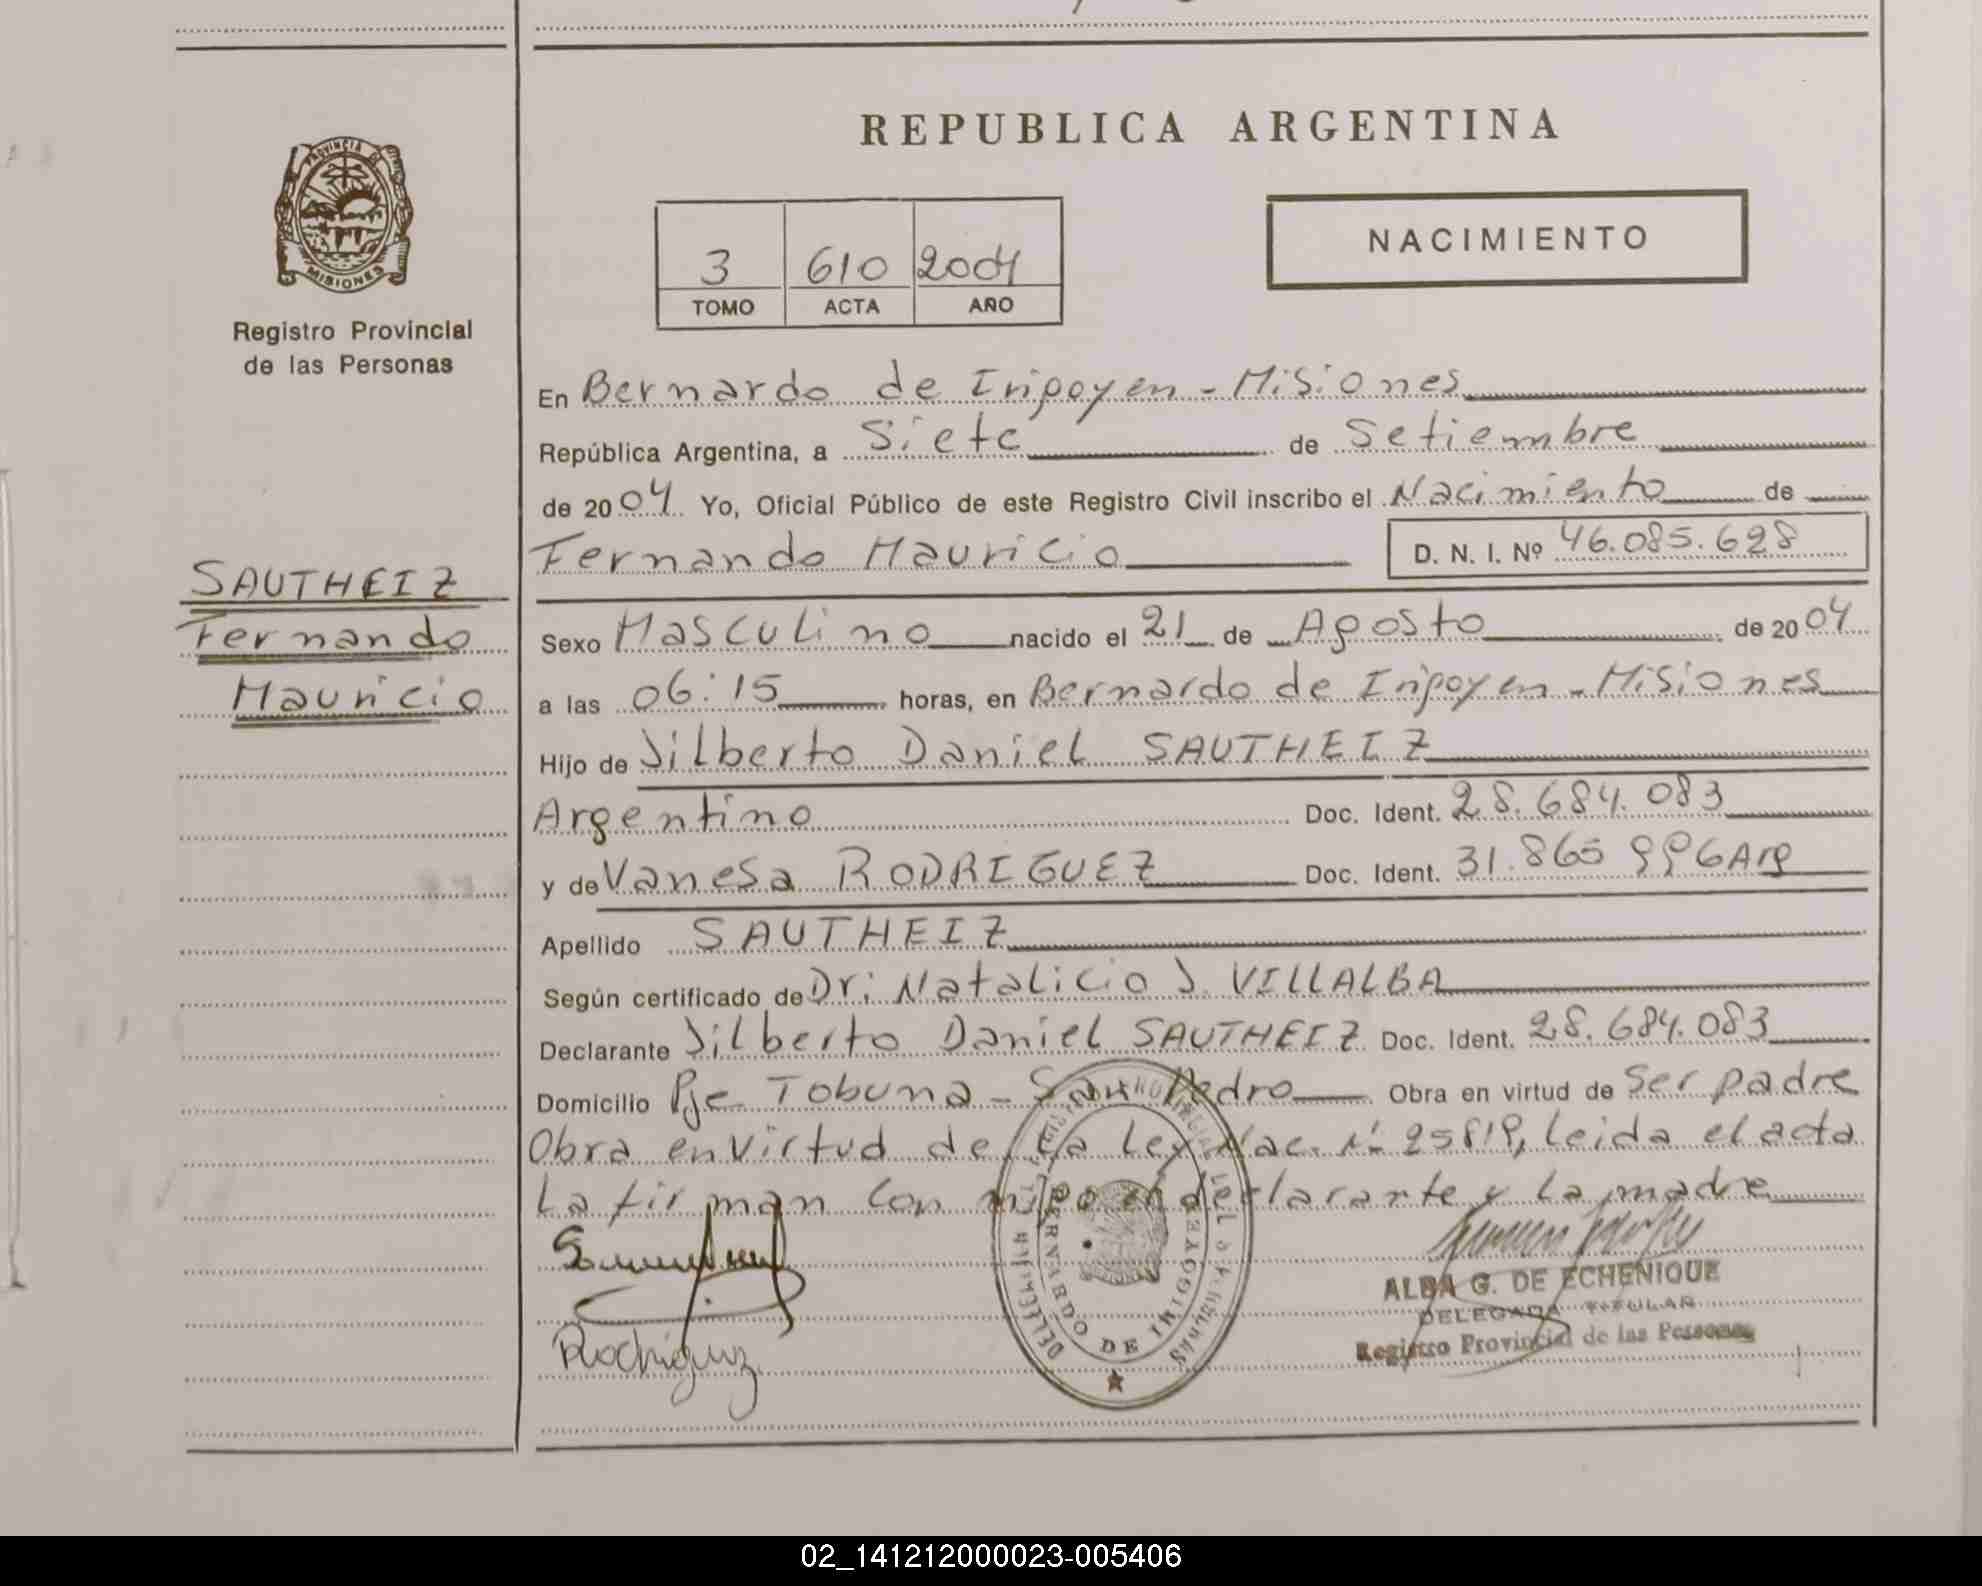 REPUBLICA ARGENTINA
PROVINCIA DE
MISIONES
Registro Provincial
de las Personas
3 610 2004
TOMO ACTA AÑO
NACIMIENTO
SAUTHEIZ
Fernando
Mauricio
En Bernardo de Irigoyen - Misiones
República Argentina, a Siete de Setiembre
de 2004 Yo, Oficial Público de este Registro Civil inscribo el Nacimiento de
Fernando Mauricio D. N. I. Nº 46.085.628
Sexo Masculino nacido el 21 de Agosto de 2004
a las 06:15 horas, en Bernardo de Irigoyen - Misiones
Hijo de Jilberto Daniel SAUTHEIZ
Argentino Doc. Ident. 28.684.083
y de Vanesa RODRIGUEZ Doc. Ident. 31.865 996 Arg
Apellido SAUTHEIZ
Según certificado de Dr: Natalicio J. VILLALBA
Declarante Jilberto Daniel SAUTHEIZ Doc. Ident. 28.684.083
Domicilio Pje Tobuna - San Pedro Obra en virtud de Ser padre
Obra en virtud de La Ley Nac. Nº 25819, leida el acta
La firman con migo el declarante y La madre
Rodriguez
BERNARDO DE IRIGOYEN
ALBA G. DE ECHENIQUE
DELEGADA TITULAR
Registro Provincial de las Personas
02_141212000023-005406